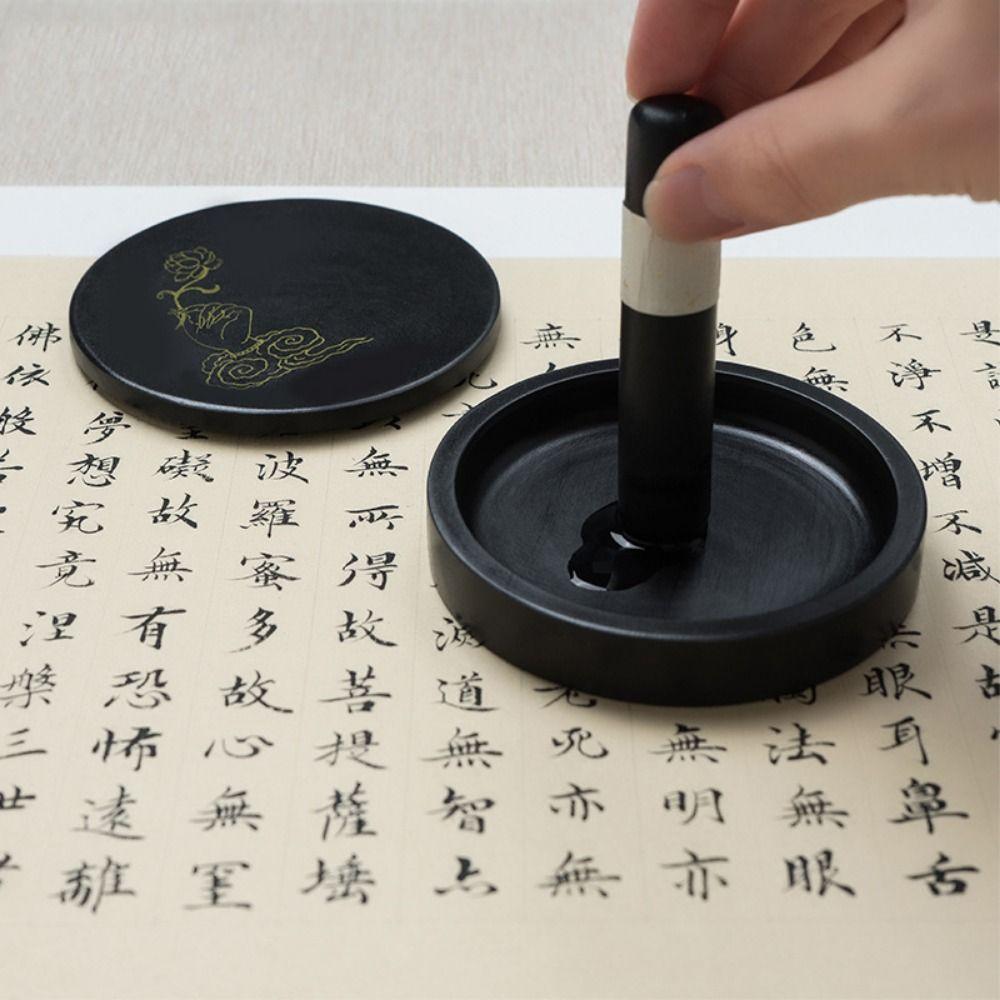 是
不淨不增不減是故
色無無眼耳鼻舌
身法無眼
無無明亦
老死亦無
滅道無智亦
無所得故菩提薩埵
波羅蜜多故心無罣
礙故無有恐怖遠離
夢想究竟涅槃三世
佛依般